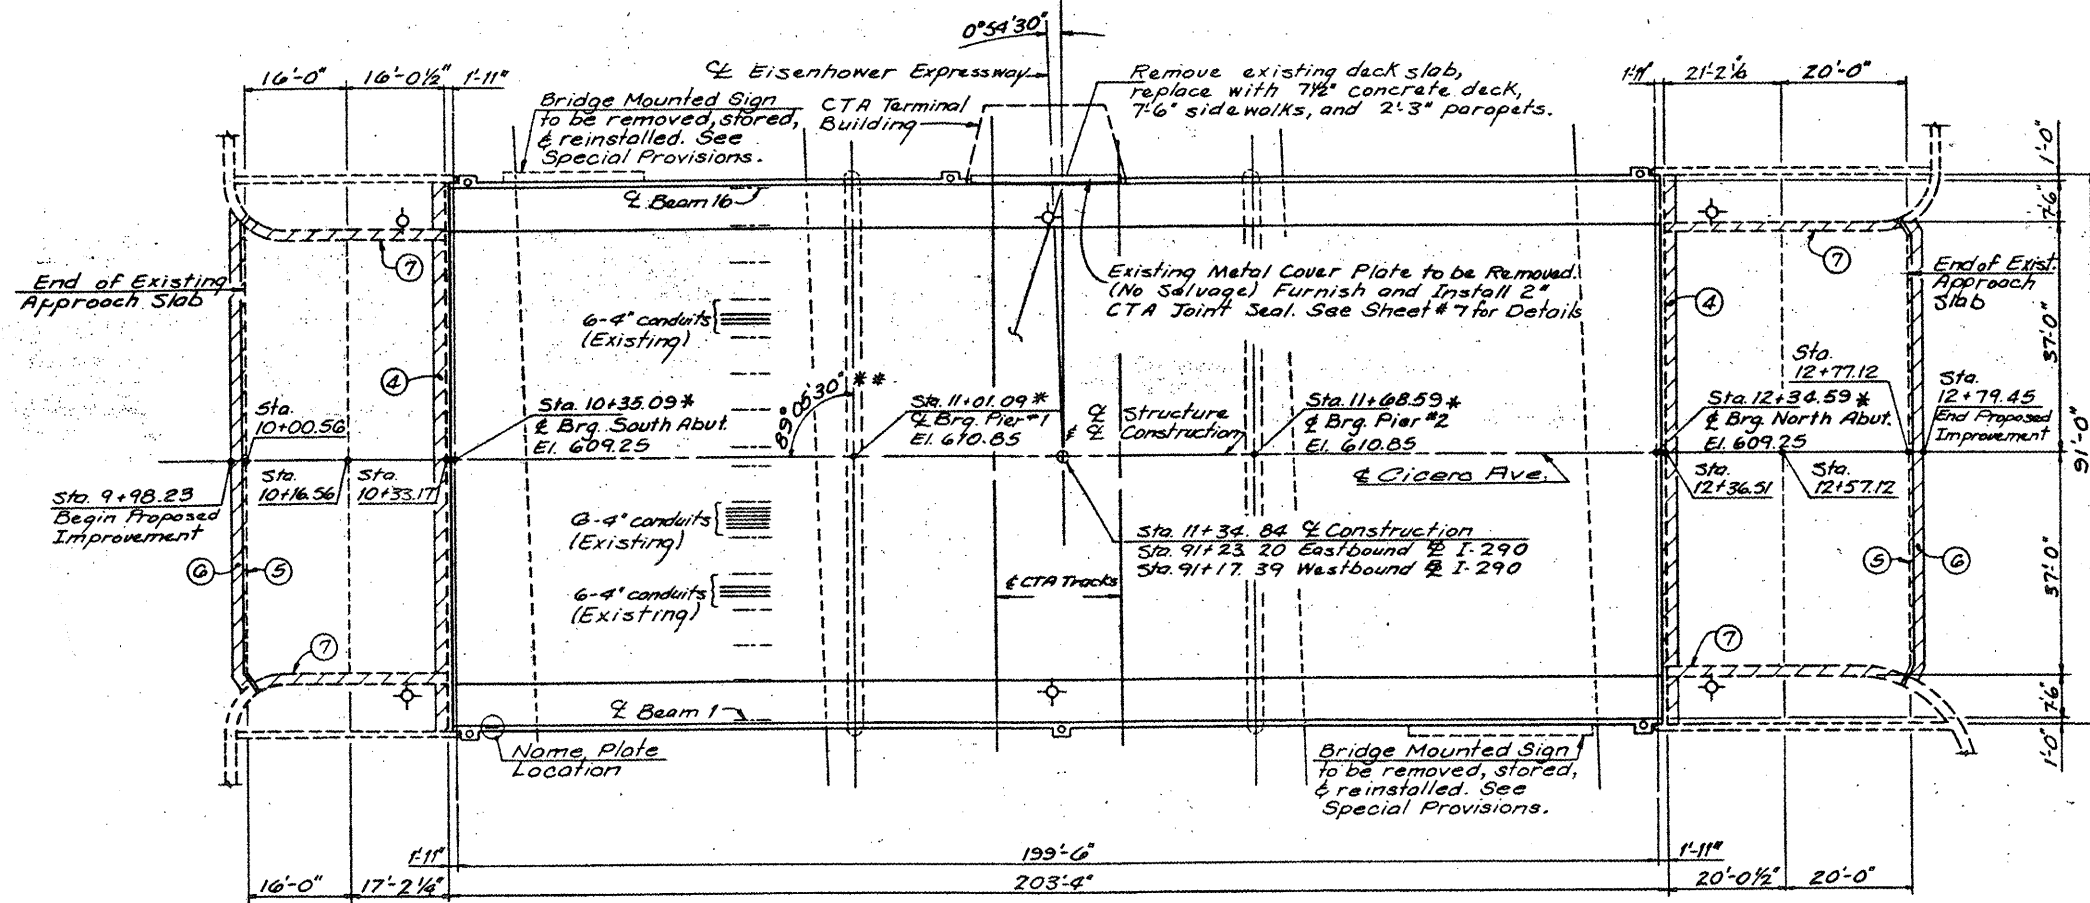 0°54'30"
16'-0" 16'-0½" 1'-11"
℄ Eisenhower Expressway
Remove existing deck slab,
replace with 7½" concrete deck,
7'-6" sidewalks, and 2'-3" parapets.
1'-11" 21'-2⅛ 20'-0"
Bridge Mounted Sign
to be removed, stored,
& reinstalled. See
Special Provisions.
CTA Terminal
Building
1'-0"
7'-6"
37'-0"
91'-0"
37'-0"
7'-6"
1'-0"
℄ Beam 16
7
7
End of Existing
Approach Slab
Existing Metal Cover Plate to be Removed.
(No Salvage) Furnish and Install 2"
CTA Joint Seal. See Sheet #7 for Details
End of Exist.
Approach
Slab
4
6-4" conduits
(Existing)
4
89°05'30" **
Sta.
10+00.56
Sta. 10+35.09*
℄ Brg. South Abut.
El. 609.25
Sta. 11+01.09*
℄ Brg. Pier #1
El. 610.85
℄ Structure
& ℄ Construction
Sta. 11+68.59*
℄ Brg. Pier #2
El. 610.85
Sta. 12+34.59*
℄ Brg. North Abut.
El. 609.25
Sta.
12+77.12
Sta.
12+79.45
End Proposed
Improvement
Sta. 9+98.23
Begin Proposed
Improvement
Sta.
10+16.56
Sta.
10+33.17
℄ Cicero Ave.
Sta.
12+36.51
Sta.
12+57.12
6-4" conduits
(Existing)
Sta. 11+34.84 ℄ Construction
Sta. 91+23.20 Eastbound ℄ I-290
Sta. 91+17.39 Westbound ℄ I-290
6
5
5
6
6-4" conduits
(Existing)
℄ CTA Tracks
7
7
℄ Beam 1
Name Plate
Location
Bridge Mounted Sign
to be removed, stored,
& reinstalled. See
Special Provisions.
1'-11" 199'-6" 1'-11"
16'-0" 17'-2¼" 203'-4" 20'-0½" 20'-0"